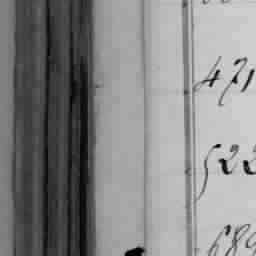 471
522
689